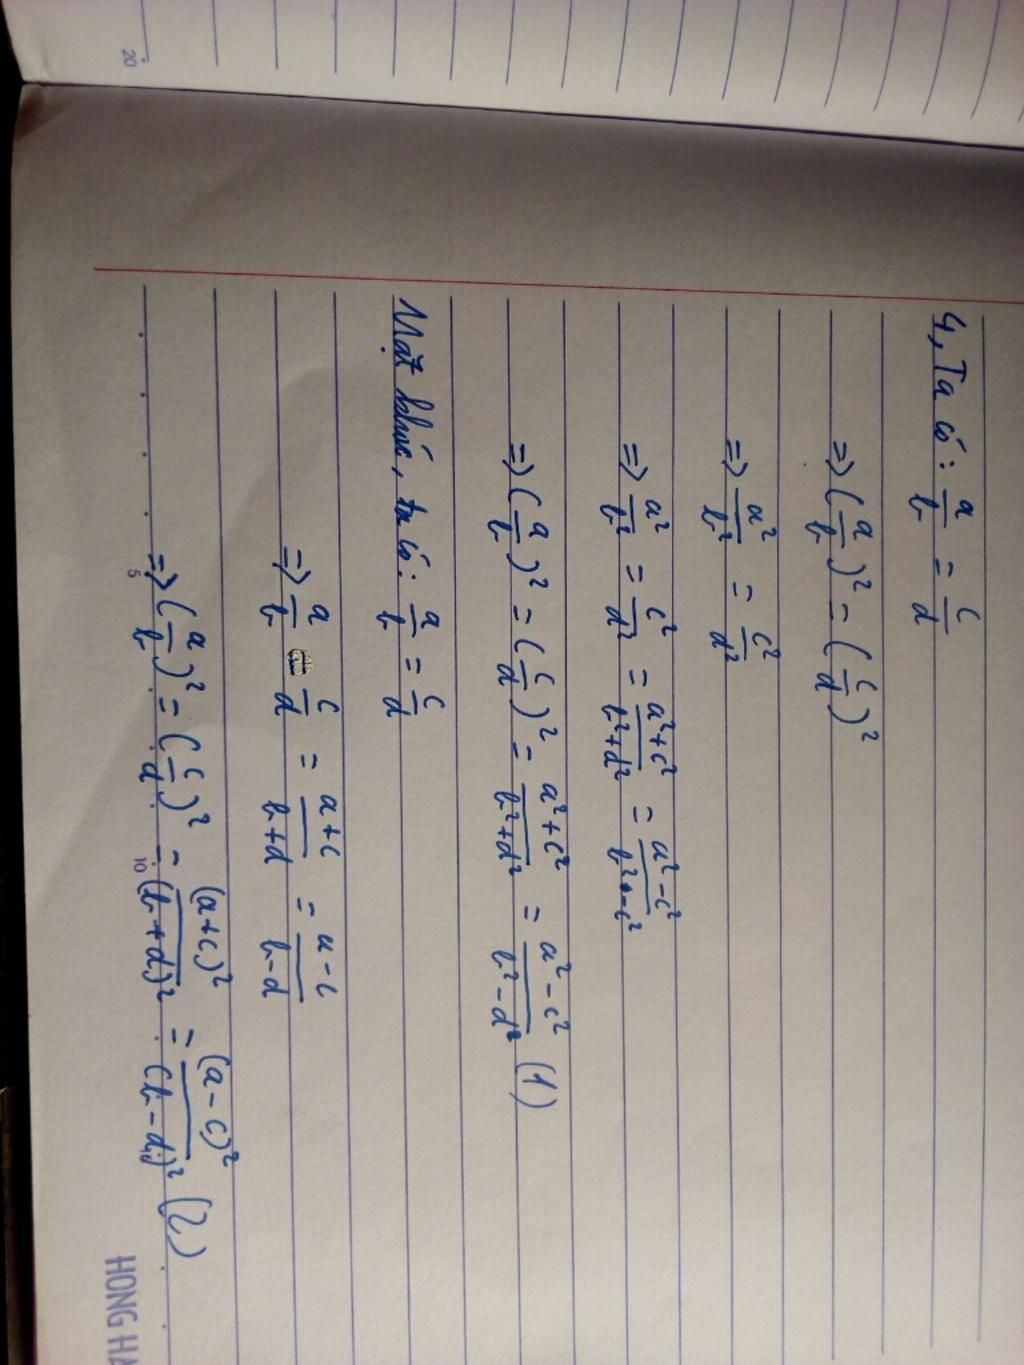 4, Ta có: a/b = c/d
=> (a/b)² = (c/d)²
=> a²/b² = c²/d²
=> a²/b² = c²/d² = a²+c²/b²+d² = a²-c²/b²-c²
=> (a/b)² = (c/d)² = a²+c²/b²+d² = a²-c²/b²-d² (1)
Mặt khác, ta có: a/b = c/d
=> a/b = c/d = a+c/b+d = a-c/b-d
=> (a/b)² = (c/d)² = (a+c)²/(b+d)² = (a-c)²/(b-d)² (2)
5
10
20
HONG HA